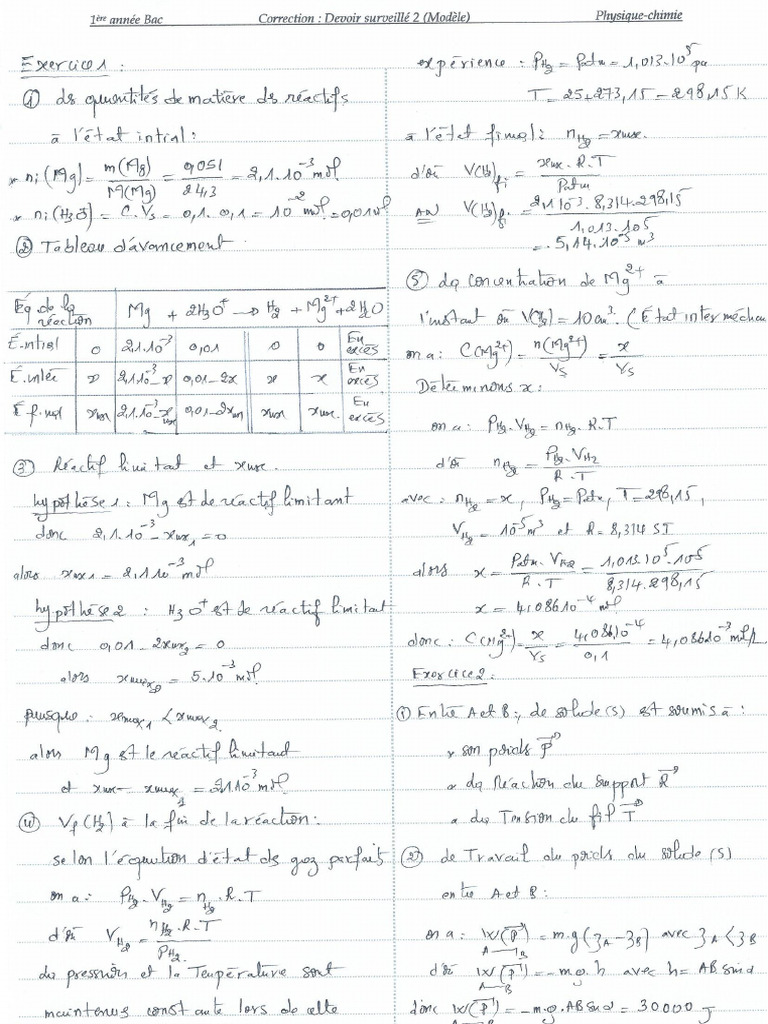 1ère année Bac Correction : Devoir surveillé 2 (Modèle) Physique-chimie
Exercice 1 :
① les quantités de matière des réactifs
à l'état intial :
* ni(Mg) = m(Mg)/M(Mg) = 0,051/24,3 = 2,1.10⁻³ mol
* ni(H3O⁺) = C.Vs = 0,1 . 0,1 = 10⁻² mol = 0,01 mol
② Tableau d'avancement
Éq. de la réaction | Mg + 2H3O⁺ → H2 + Mg²⁺ + 2H2O
É. intial | 0 | 2,1.10⁻³ | 0,01 | 0 | 0 | En excés
É. inter | x | 2,1.10⁻³ - x | 0,01 - 2x | x | x | En excés
É. final | xmax | 2,1.10⁻³ - xmax | 0,01 - 2xmax | xmax | xmax | En excés
③ Réactif limitat et xmax.
hypothèse 1 : Mg est le réactif limitant
donc 2,1.10⁻³ - xmax1 = 0
alors xmax1 = 2,1.10⁻³ mol
hypothèse 2 : H3O⁺ est le réactif limitat
donc 0,01 - 2xmax2 = 0
alors xmax2 = 5.10⁻³ mol
puisque : xmax1 < xmax2
alors Mg est le réactif limitant
et xmax = xmax1 = 2,1.10⁻³ mol
④ Vf(H2) à la fin de la réaction :
selon l'équation d'état des gaz parfait
on a : PH2.VH2 = nH2.R.T
d'où VH2 = nH2.R.T/PH2
La pression et la Température sont
maintenus constante lors de cette
expérience : PH2 = Patm = 1,013.10⁵ pa
T = 25+273,15 = 298,15 K
à l'état final : nH2 = xmax.
d'où V(H2)fi = xmax.R.T/Patm
AN V(H2)fi = 2,1.10⁻³.8,314.298,15/1,013.10⁵
= 5,14.10⁻⁵ m³
⑤ La concentration de Mg²⁺ à
l'instant où V(H2) = 10 cm³. (État interméd
on a : C(Mg²⁺) = n(Mg²⁺)/Vs = x/Vs
Déterminons x :
on a : PH2.VH2 = nH2.R.T
d'où nH2 = PH2.VH2/R.T
avec : nH2 = x, PH2 = Patm, T = 298,15,
VH2 = 10⁻⁵ m³ et R = 8,314 SI
alors x = Patm.VH2/R.T = 1,013.10⁵.10⁻⁵/8,314.298,15
x = 4,086.10⁻⁴ mol
donc : C(Mg²⁺) = x/Vs = 4,086.10⁻⁴/0,1 = 4,086.10⁻³ mol/L
Exercice 2 :
① Entre A et B : le solide (S) est soumis à :
* son poids P⃗
* La Réaction du support R⃗
* La Tension du fil T⃗
② Le Travail du poids du solide (S)
entre A et B :
on a : W(P⃗)A→B = m.g(zA - zB) avec zA < zB
d'où W(P⃗)A→B = -m.g.h avec h = AB sin α
donc W(P⃗)A→B = -m.g.AB sin α = 30000 J